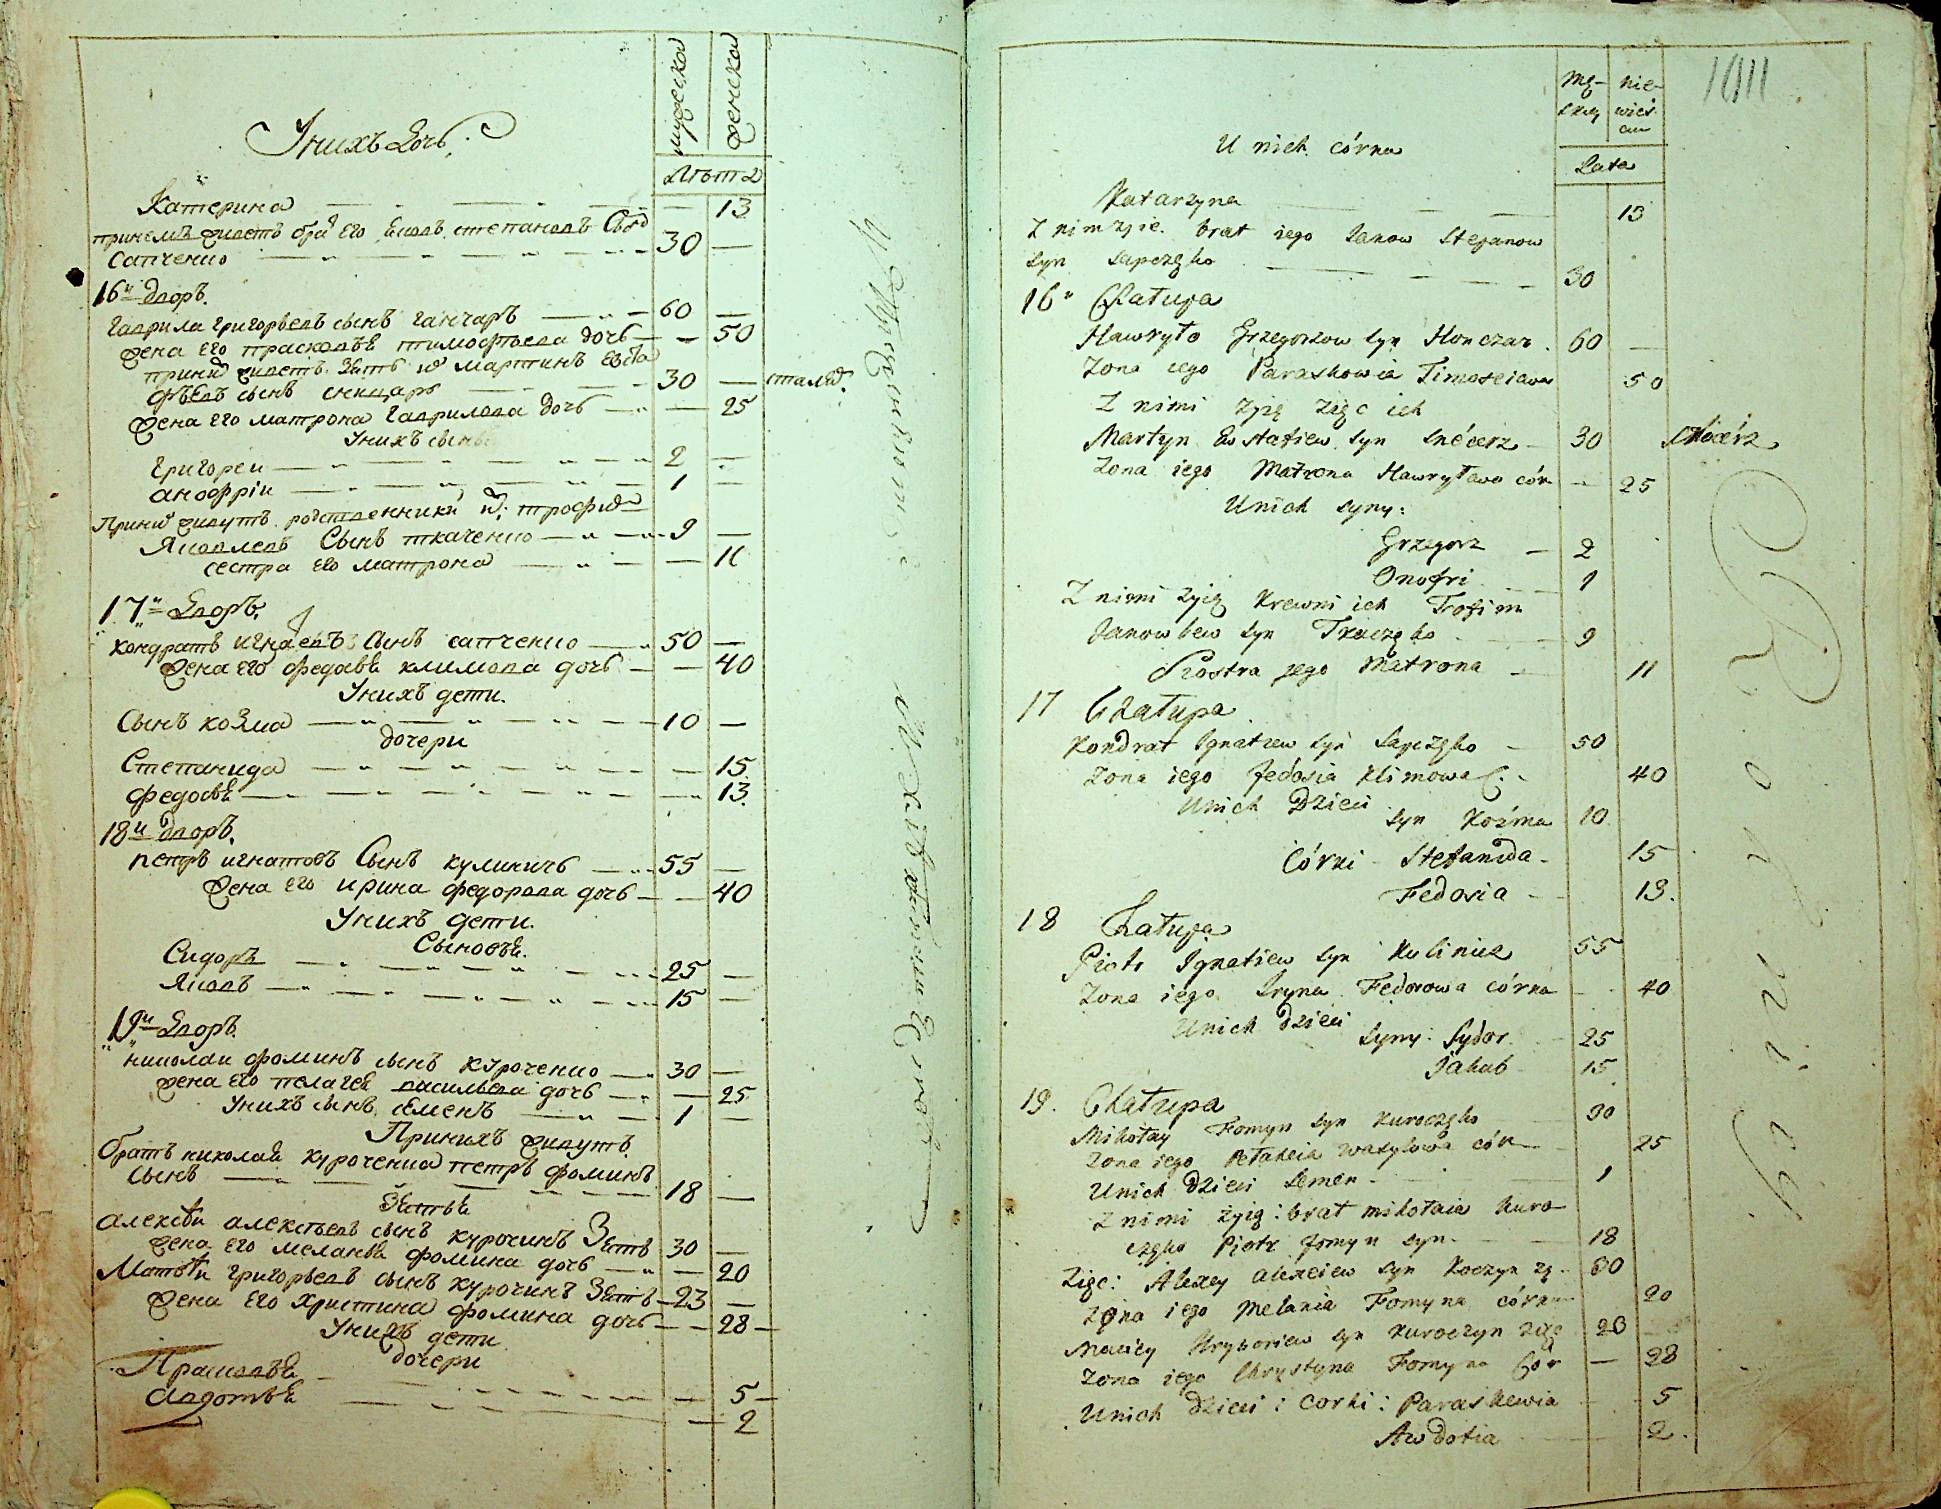 У нихъ дочь,
мужеска
женска
лѣта
Катерина 13
при немъ живетъ братъ его Яковъ степановъ Сынъ
Сапченко 30
16й дворъ.
Гаврила григорьевъ сынъ ганчаръ 60
жена его прасковья тимофѣева дочь 50
при нихъ живетъ зять их мартинъ евста
фьевъ сынъ сницаръ 30
жена его матрона гаврилова дочь 25
У нихъ сыны
Григореи 2
анофріи 1
При них живутъ родственники их трофим
Яковлевъ Сынъ ткаченко 9
сестра его матрона 11
17й дворъ.
кондратъ игнаевъ Сынъ сапченко 50
жена его федосья климова дочь 40
У нихъ дети.
Сынъ козма 10
дочери
Степанида 15
федосья 13
18й дворъ.
петръ игнатовъ Сынъ кулиничъ 55
жена его ирина федорова дочь 40
У нихъ дети.
Сыновья.
Сидоръ 25
Яковъ 15
19й дворъ.
николаи фоминъ сынъ куроченко 30
жена его пелагея васильева дочь 25
У нихъ сынъ семенъ 1
При нихъ живутъ
братъ николая куроченка петръ фоминъ
сынъ 18
Зятья
алексѣи алексѣевъ сынъ курочинъ Зять 30
жена его меланья фомина дочь 20
Матвѣи григорьевъ сынъ курочинъ Зять 23
жена его христина фомина дочь 28
У нихъ дети
дочери
Прасковья 5
авдотья 2
1011
Mę-
skiey
nie-
wieś
cia
Lata
U nich córka
Katarzyna 13
Z nim zyie brat iego Jakow Stepanow
syn Sapczęko 30
16 Chałupa
Hawryło Grzegorzow syn Honczar 60
Zona iego Paraskowia Timoseiewa 50
Z nimi zyią zięc ich
Martyn Ewstafiew syn Snécerz 30
Zona iego Matrona Hawryłowa cór 25
U nich syny:
Grzegorz 2
Onofri 1
Z nimi zyią krewni ich Trofim
Jakowlew syn Tkaczęko 9
Siostra jego Matrona 11
17 Chałupa
Kondrat Ignatiew syn Sapczęko 50
Zona iego Fedosia Klimowa C. 40
U nich Dzieci syn Koźma 10
Córki Stefanida 15
Fedosia 13.
18 Chałupa
Piotr Ignatiew syn Kulinicz 55
Zona iego Iryna Fedorowa córka 40
U nich dzieci syny: Sydor 25
Jakub 15
19. Chałupa
Mikołay Fomyn syn Kuroczęko 30
Zona iego Pełaheia Wasylowa cór 25
U nich dzieci Semen 1
Z nimi zyią: brat mikołaia Kuro
częko Piotr Fomyn syn 18
Zięc: Alexey alexeiew syn Koczyn zę 30
Zona iego Melania Fomyna córka 20
Maciey Hryhoriew syn Kuroczyn zięc 23
Zona iego Chrystyna Fomyna Cór 28
U nich dzieci: corki: Paraskewia 5
Awdotia 2.